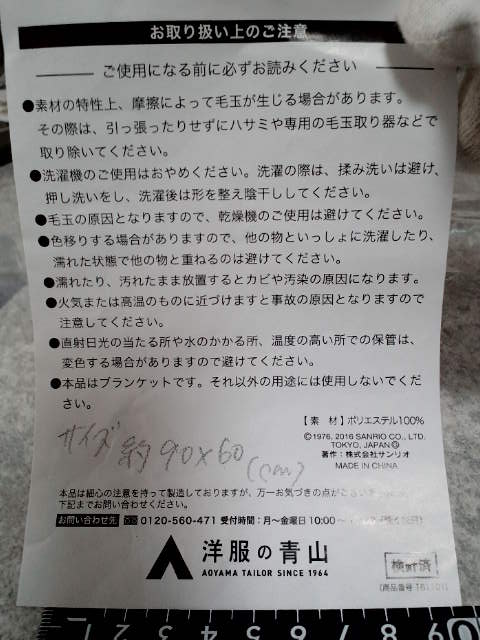 お取り扱い上のご注意
ご使用になる前に必ずお読みください
●素材の特性上、摩擦によって毛玉が生じる場合があります。
その際は、引っ張ったりせずにハサミや専用の毛玉取り器などで
取り除いてください。
●洗濯機のご使用はおやめください。洗濯の際は、揉み洗いは避け、
押し洗いをし、洗濯後は形を整え陰干ししてください。
●毛玉の原因となりますので、乾燥機のご使用は避けてください。
●色移りする場合がありますので、他の物といっしょに洗濯したり、
濡れた状態で他の物と重ねるのは避けてください。
●濡れたり、汚れたまま放置するとカビや汚染の原因になります。
●火気または高温のものに近づけますと事故の原因となりますので
注意してください。
●直射日光の当たる所や水のかかる所、温度の高い所での保管は、
変色する場合がありますので避けてください。
●本品はブランケットです。それ以外の用途には使用しないでくだ
さい。
サイズ 約90×60(cm)
【素 材】ポリエステル100%
©1976, 2016 SANRIO CO., LTD.
TOKYO, JAPAN Ⓛ
著作：株式会社サンリオ
MADE IN CHINA
本品は細心の注意を持って製造しておりますが、万一お気づきの点がござい
下記までお問い合わせください。
お問い合わせ先 0120-560-471 受付時間：月～金曜日 10:00～
洋服の青山
AOYAMA TAILOR SINCE 1964
検針済
(商品番号
1 2 3 4 5 6 7 8 9 10